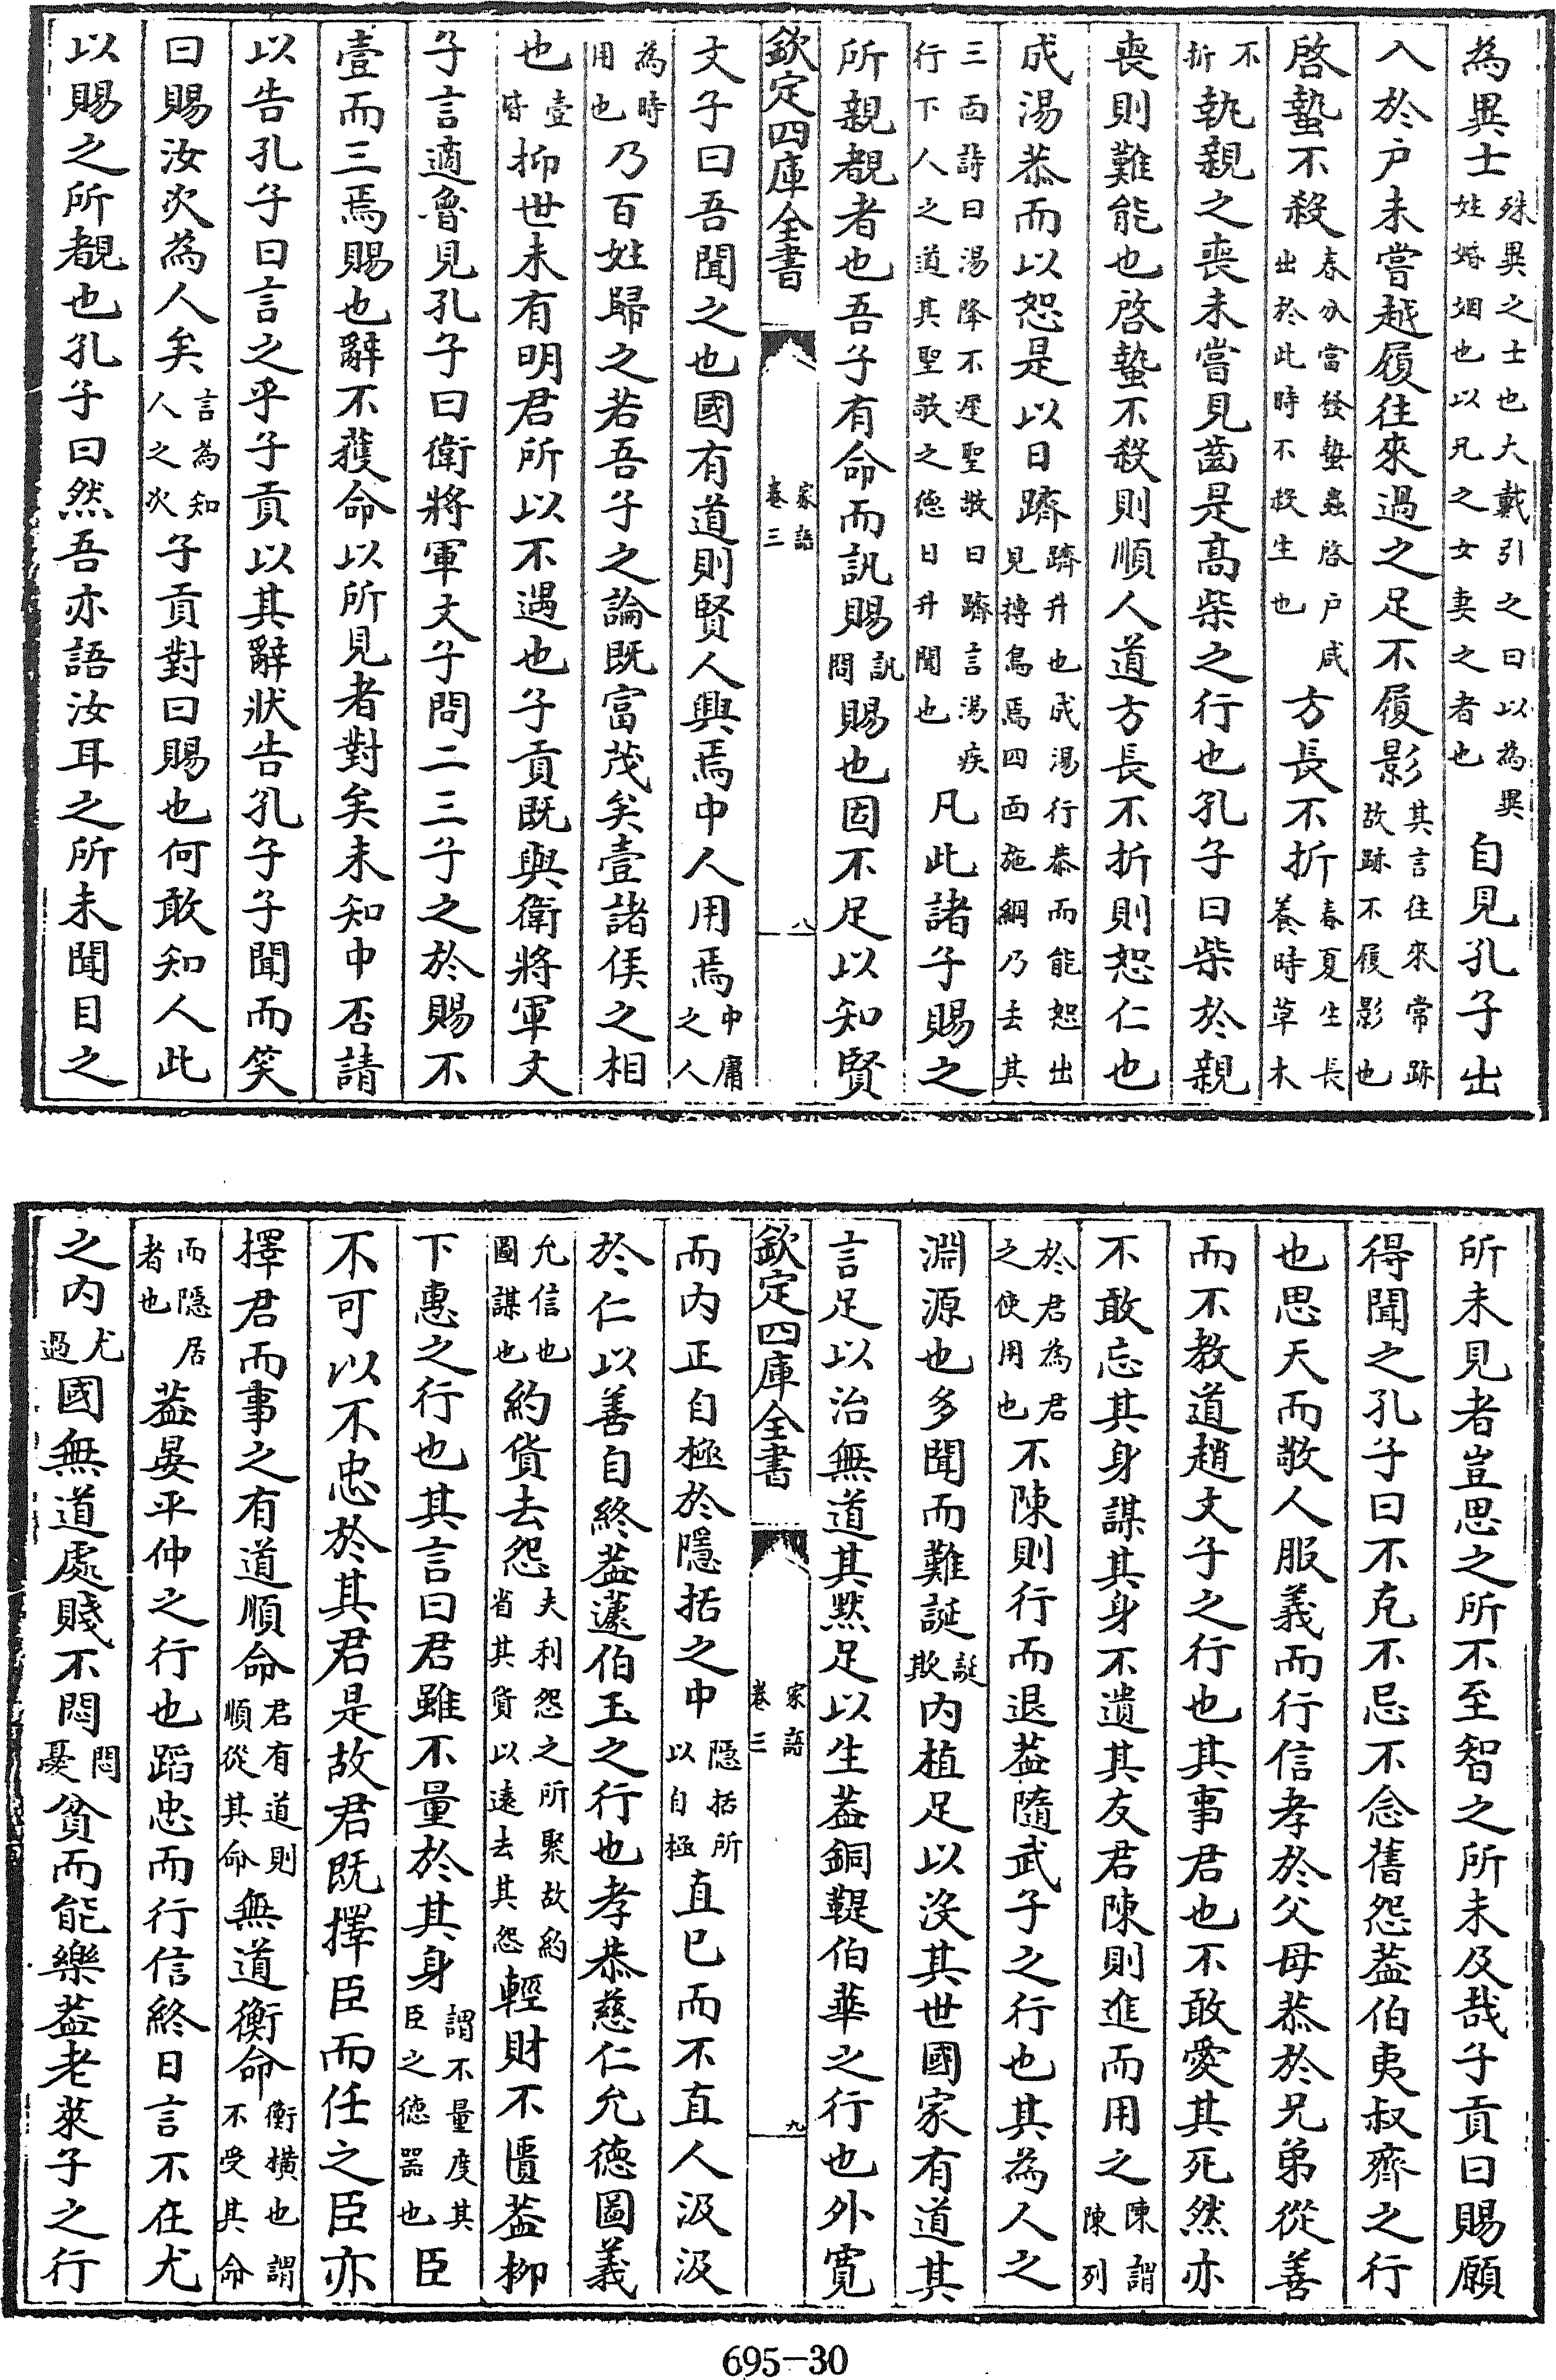 為異士殊異之士也大戴引之曰以為異姓婚姻也以兄之女妻之者也自見孔子出
入於户未嘗越履往來過之足不履影其言往來常跡故跡不履影也
啓蟄不殺春分當發蟄蟲啓户咸出於此時不殺生也方長不折春夏生長養時草木
不折執親之喪未嘗見齒是高柴之行也孔子曰柴於親
喪則難能也啓蟄不殺則順人道方長不折則恕仁也
成湯恭而以恕是以日躋躋升也成湯行恭而能恕出見摶鳥焉四面施網乃去其
三面詩曰湯降不遲聖敬日躋言湯疾行下人之道其聖敬之德日升聞也凡此諸子賜之
所親覩者也吾子有命而訊賜訊問賜也固不足以知賢
欽定四庫全書
家語卷三
八
文子曰吾聞之也國有道則賢人興焉中人用焉中庸之人
為時用也乃百姓歸之若吾子之論既富茂矣壹諸侯之相
也壹皆抑世未有明君所以不遇也子貢既與衛將軍文
子言適魯見孔子曰衛將軍文子問二三子之於賜不
壹而三焉賜也辭不獲命以所見者對矣未知中否請
以告孔子曰言之乎子貢以其辭狀告孔子子聞而笑
曰賜汝次為人矣言為知人之次子貢對曰賜也何敢知人此
以賜之所覩也孔子曰然吾亦語汝耳之所未聞目之
所未見者豈思之所不至智之所未及哉子貢曰賜願
得聞之孔子曰不克不忌不念舊怨葢伯夷叔齊之行
也思天而敬人服義而行信孝於父母恭於兄弟從善
而不教道趙文子之行也其事君也不敢愛其死然亦
不敢忘其身謀其身不遺其友君陳則進而用之陳謂陳列
於君為君之使用也不陳則行而退葢隨武子之行也其為人之
淵源也多聞而難誕誕欺內植足以沒其世國家有道其
言足以治無道其黙足以生葢銅鞮伯華之行也外寛
欽定四庫全書
家語卷三
九
而內正自極於隱括之中隱括所以自極直已而不直人汲汲
於仁以善自終葢蘧伯玉之行也孝恭慈仁允德圖義
允信也圖謀也約貨去怨夫利怨之所聚故約省其貨以遠去其怨輕財不匱葢柳
下惠之行也其言曰君雖不量於其身謂不量度其臣之德器也臣
不可以不忠於其君是故君既擇臣而任之臣亦
擇君而事之有道順命君有道則順從其命無道衡命衡橫也謂不受其命
而隱居者也葢晏平仲之行也蹈忠而行信終日言不在尤
之內尤過國無道處賤不悶悶憂貧而能樂葢老萊子之行
695-30